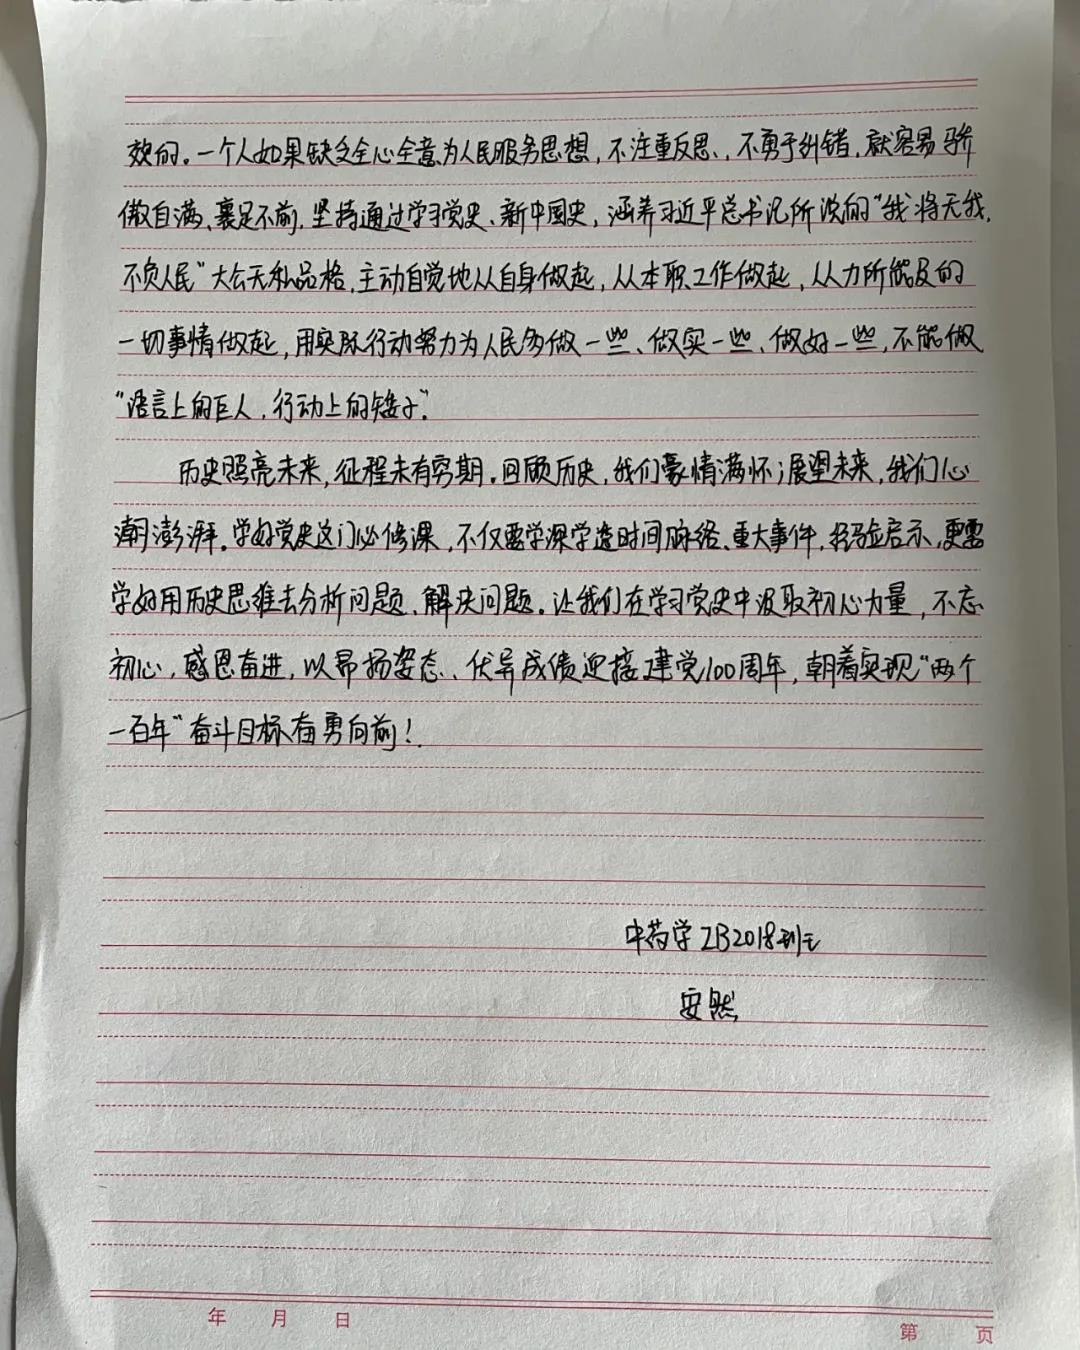 效的。一个人如果缺乏全心全意为人民服务思想，不注重反思、不勇于纠错，就容易骄
傲自满、裹足不前。坚持通过学习党史、新中国史，涵养习近平总书记所说的“我将无我，
不负人民”大公无私品格，主动自觉地从自身做起，从本职工作做起，从力所能及的
一切事情做起，用实际行动努力为人民多做一些、做实一些、做好一些，不能做
“语言上的巨人，行动上的矮子”。
历史照亮未来，征程未有穷期。回顾历史，我们豪情满怀；展望未来，我们心
潮澎湃。学好党史这门必修课，不仅要学深学透时间脉络、重大事件，经验启示，更需
学好用历史思维去分析问题、解决问题。让我们在学习党史中汲取初心力量，不忘
初心，感恩奋进，以昂扬姿态、优异成绩迎接建党100周年，朝着实现“两个
一百年”奋斗目标奋勇向前！
中药学ZB2018班
安然
年 月 日
第 页